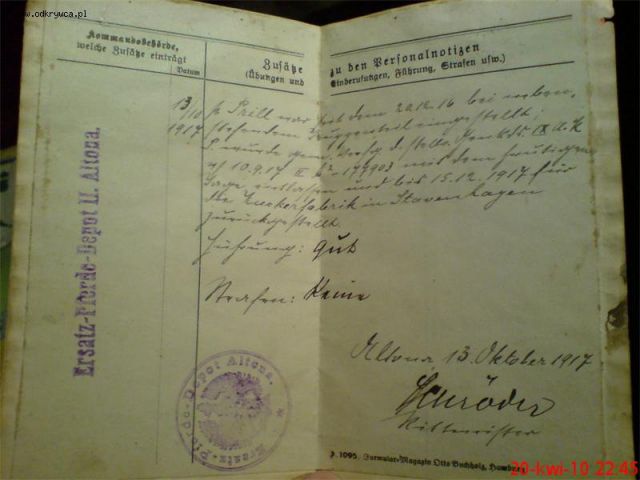 www.odkrywca.pl
Kommandobehörde,
welche Zusätze einträgt
Datum
Zusätze
(Übungen und
zu den Personalnotizen
Einberufungen, Führung, Strafen usw.)
Ersatz-Pferde-Depot II. Altona.
13/10
1917
p. Prill war seit dem 20.12.16 bei neben-
stehendem Truppenteil eingestellt;
wurde gem. Verfg. d. stellv. IX A.K.
v. 10.9.17 mit dem heutigen
Tage entlassen und bis 15.12.1917 für
die Zuckerfabrik in Stavenhagen
zurückgestellt
Führung: Gut
Strafen: Keine
Altona 13. Oktober 1917
Schröder
Rittmeister
Ersatz-Pferde-Depot Altona.
1095. Formular-Magazin Otto Buchholz, Hamburg
20-kwi-10 22:45